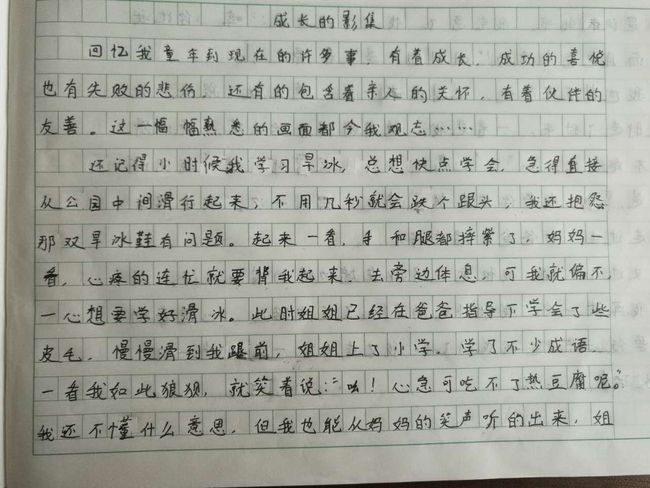 成长的影集
回忆我童年到现在的许多事，有着成长，成功的喜悦
也有失败的悲伤，还有的包含着亲人的关怀，有着伙伴的
友善。这一幅幅熟悉的画面都令我难忘……
还记得小时候我学习旱冰，总想快点学会，急得直接
从公园中间滑行起来，不用几秒就会跌个跟头，我还抱怨
那双旱冰鞋有问题。起来一看，手和腿都摔紫了，妈妈一
看，心疼的连忙就要背我起来，去旁边休息，可我就偏不，
一心想要学好滑冰。此时姐姐已经在爸爸指导下学会了些
皮毛，慢慢滑到我跟前，姐姐上了小学，学了不少成语，
一看我如此狼狈，就笑着说：“呦！心急可吃不了热豆腐呢。”
我还不懂什么意思，但我也能从妈妈的笑声听的出来，姐